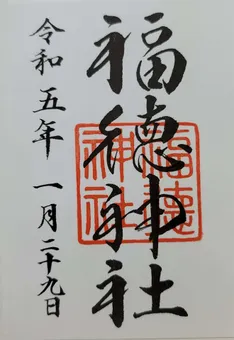 福徳神社
令和五年 一月二十九日
福徳神社